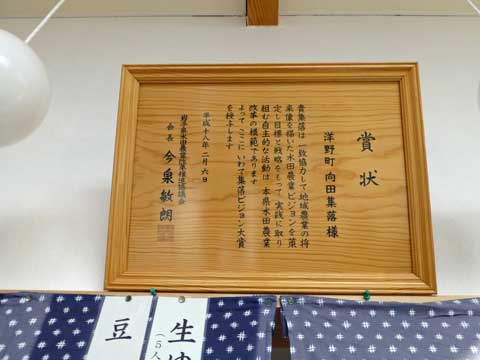 賞状
洋野町 向田集落様
貴集落は一致協力して地域農業の将
来像を描いた水田農業ビジョンを策
定し目標と戦略をもって実践に取り
組む自主的な活動は本県水田農業
改革の模範であります
よってここにいわて集落ビジョン大賞
を授与します
平成十八年二月六日
岩手県水田農業改革推進協議会
会長 今泉敏朗
生
(5人
豆